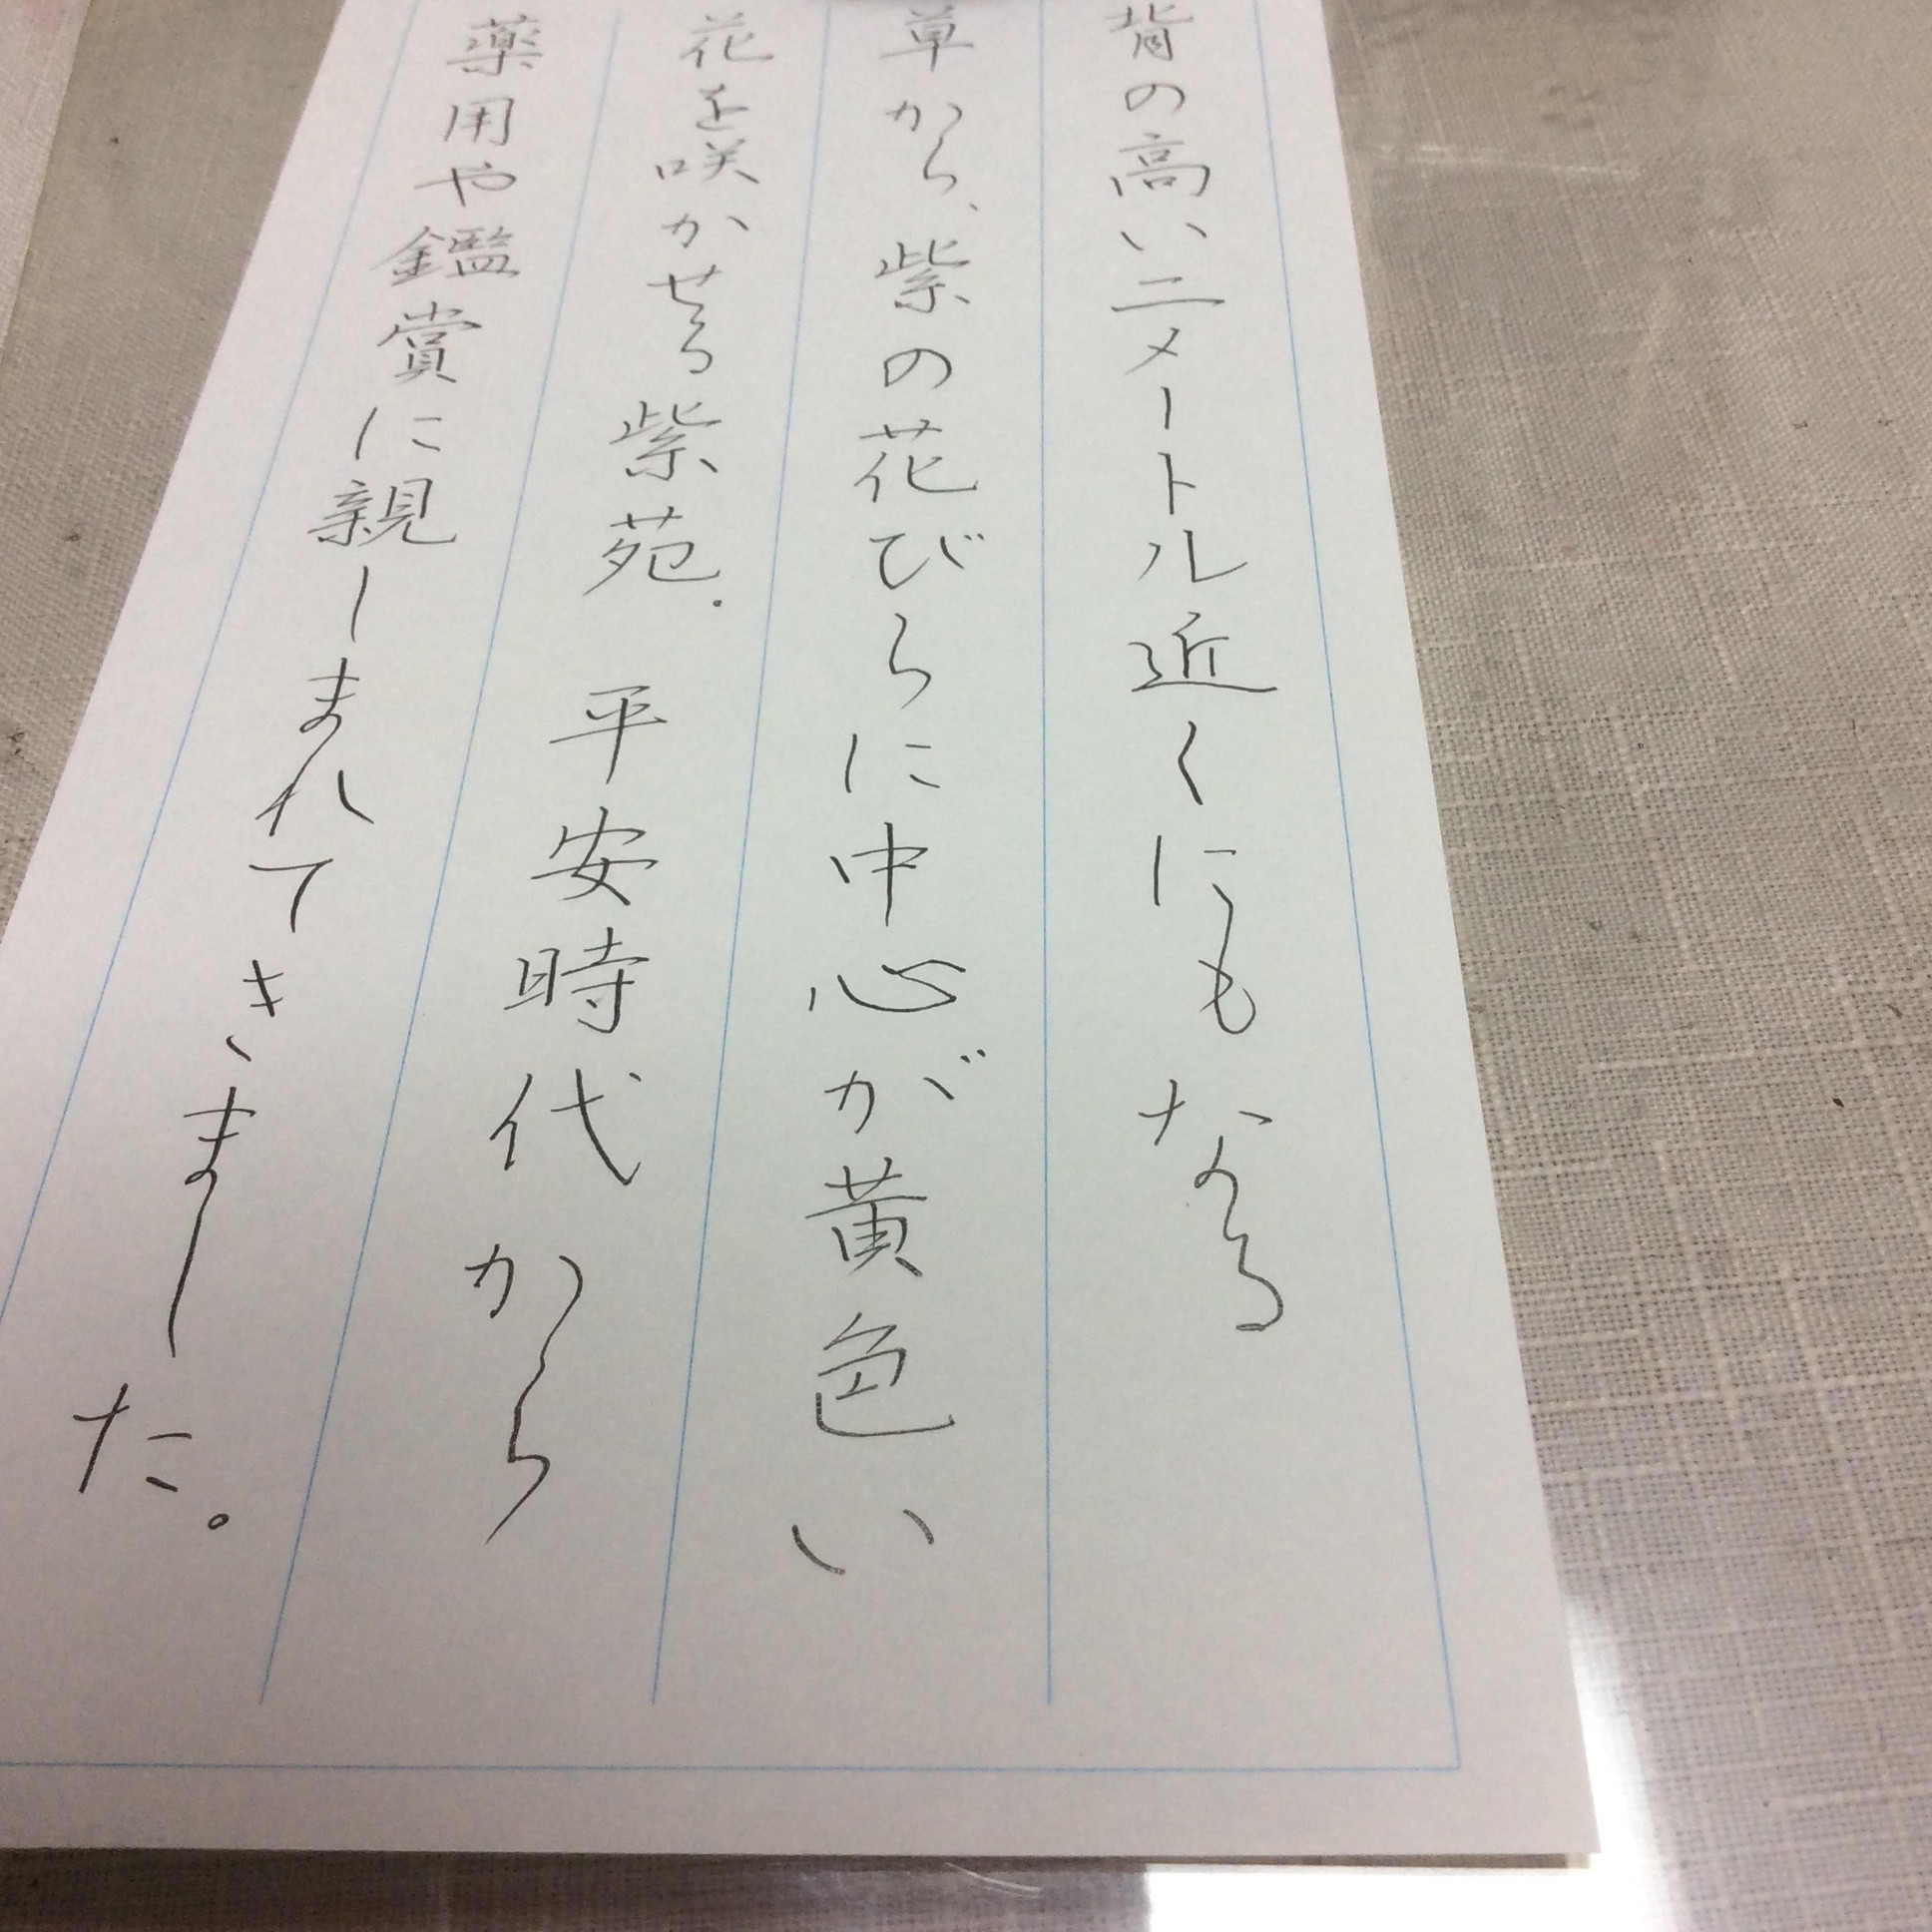 背の高い二メートル近くにもなる
草から、紫の花びらに中心が黄色い
花を咲かせる紫苑。平安時代から
薬用や鑑賞に親しまれてきました。